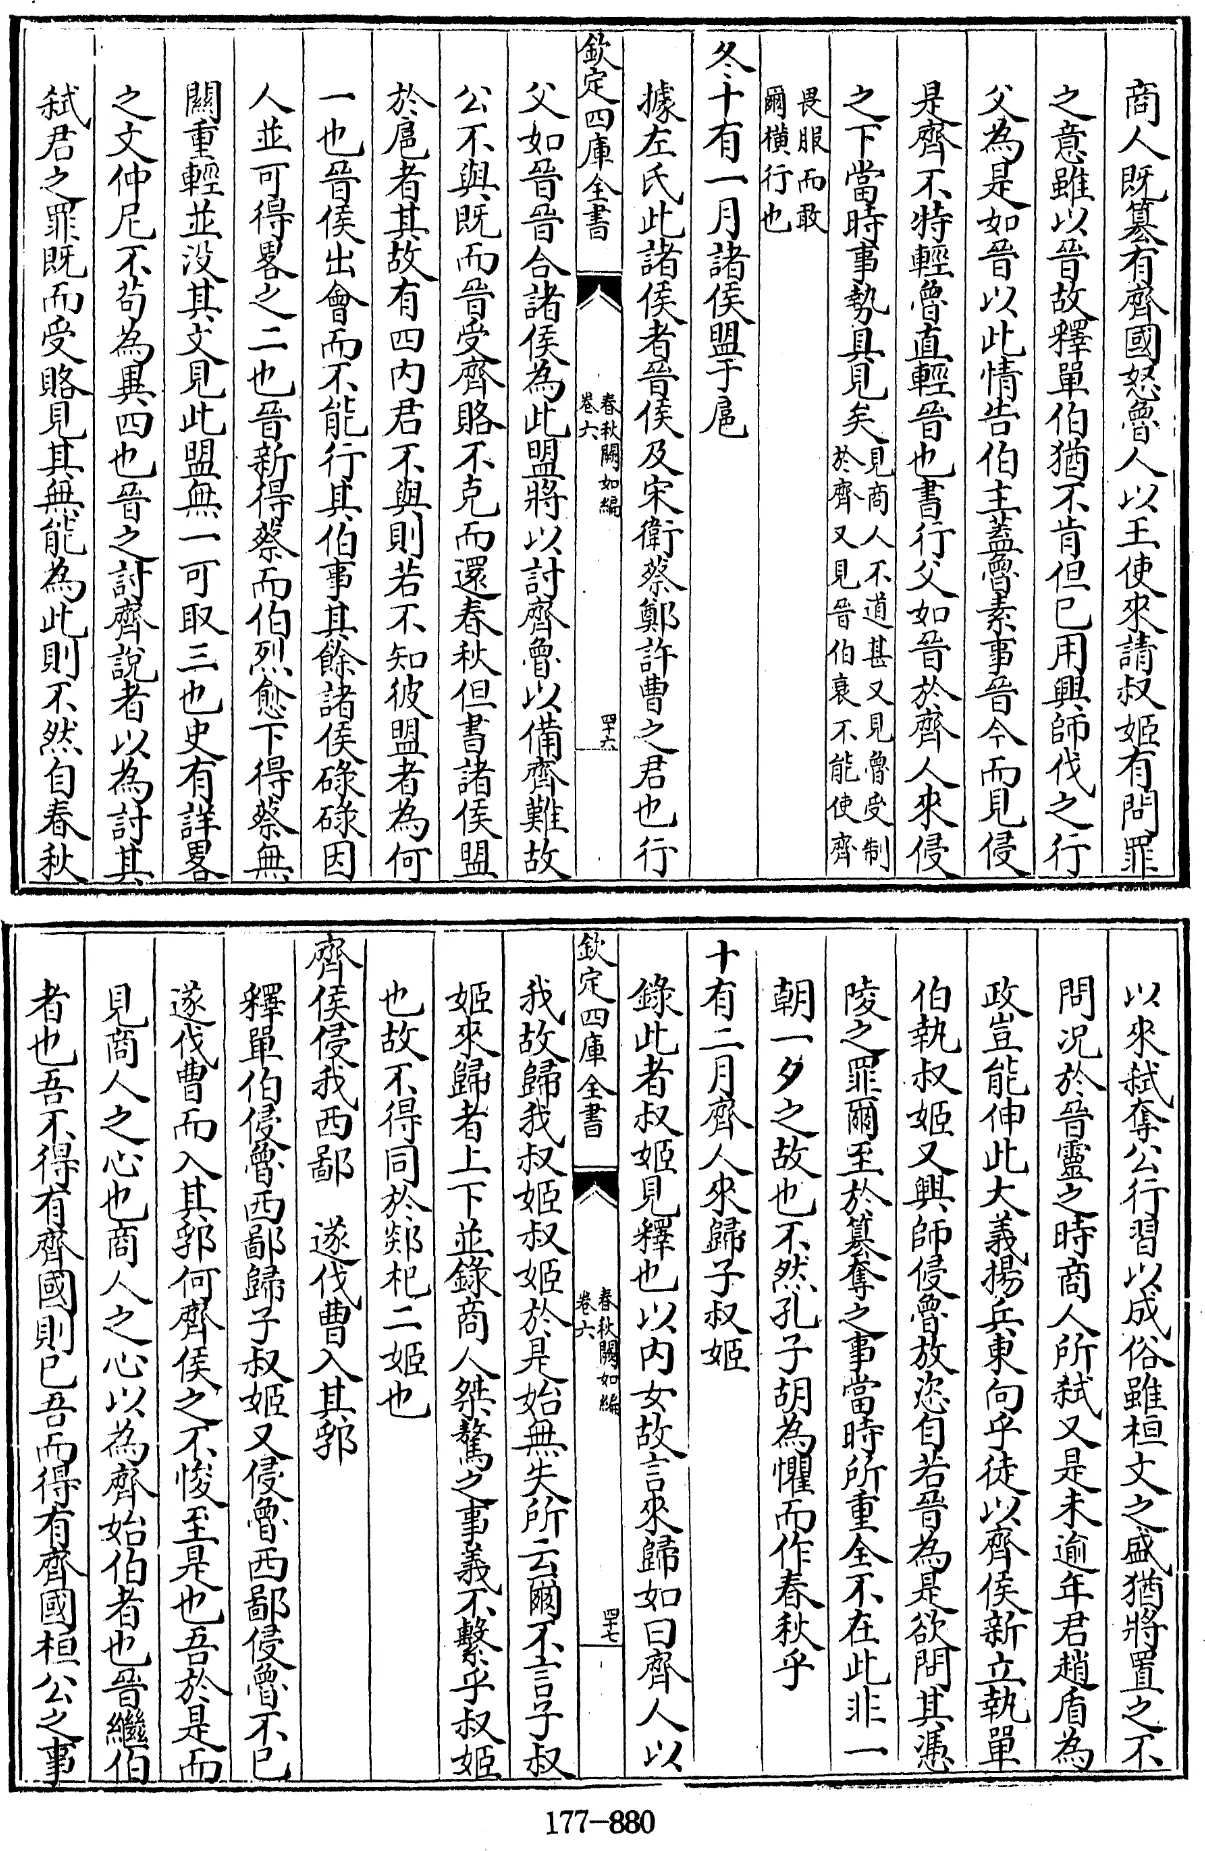 商人既簒有齊國怒魯人以王使來請叔姬有問罪
之意雖以晉故釋單伯猶不肯但已用興師伐之行
父為是如晉以此情告伯主蓋魯素事晉今而見侵
是齊不特輕魯直輕晉也書行父如晉於齊人來侵
之下當時事勢具見矣見商人不道甚又見魯受制
於齊又見晉伯衰不能使齊
畏服而敢
爾橫行也
冬十有一月諸侯盟于扈
據左氏此諸侯者晉侯及宋衛蔡鄭許曹之君也行
欽定四庫全書
春秋闕如編
卷六
四十六
父如晉晉合諸侯為此盟將以討齊魯以備齊難故
公不與既而晉受齊賂不克而還春秋但書諸侯盟
於扈者其故有四内君不與則若不知彼盟者為何
一也晉侯出會而不能行其伯事其餘諸侯碌碌因
人並可得畧之二也晉新得蔡而伯烈愈下得蔡無
關重輕並没其文見此盟無一可取三也史有詳畧
之文仲尼不苟為異四也晉之討齊說者以為討其
弑君之罪既而受賂見其無能為此則不然自春秋
以來弑奪公行習以成俗雖桓文之盛猶將置之不
問况於晉靈之時商人所弑又是未逾年君趙盾為
政豈能伸此大義揚兵東向乎徒以齊侯新立執單
伯執叔姬又興師侵魯放恣自若晉為是欲問其憑
陵之罪爾至於簒奪之事當時所重全不在此非一
朝一夕之故也不然孔子胡為懼而作春秋乎
十有二月齊人來歸子叔姬
錄此者叔姬見釋也以内女故言來歸如曰齊人以
欽定四庫全書
春秋闕如編
卷六
四十七
我故歸我叔姬叔姬於是始無失所云爾不言子叔
姬來歸者上下並錄商人桀驁之事義不繫乎叔姬
也故不得同於郯杞二姬也
齊侯侵我西鄙　遂伐曹入其郛
釋單伯侵魯西鄙歸子叔姬又侵魯西鄙侵魯不已
遂伐曹而入其郛何齊侯之不悛至是也吾於是而
見商人之心也商人之心以為齊始伯者也晉繼伯
者也吾不得有齊國則已吾而得有齊國桓公之事
177-880